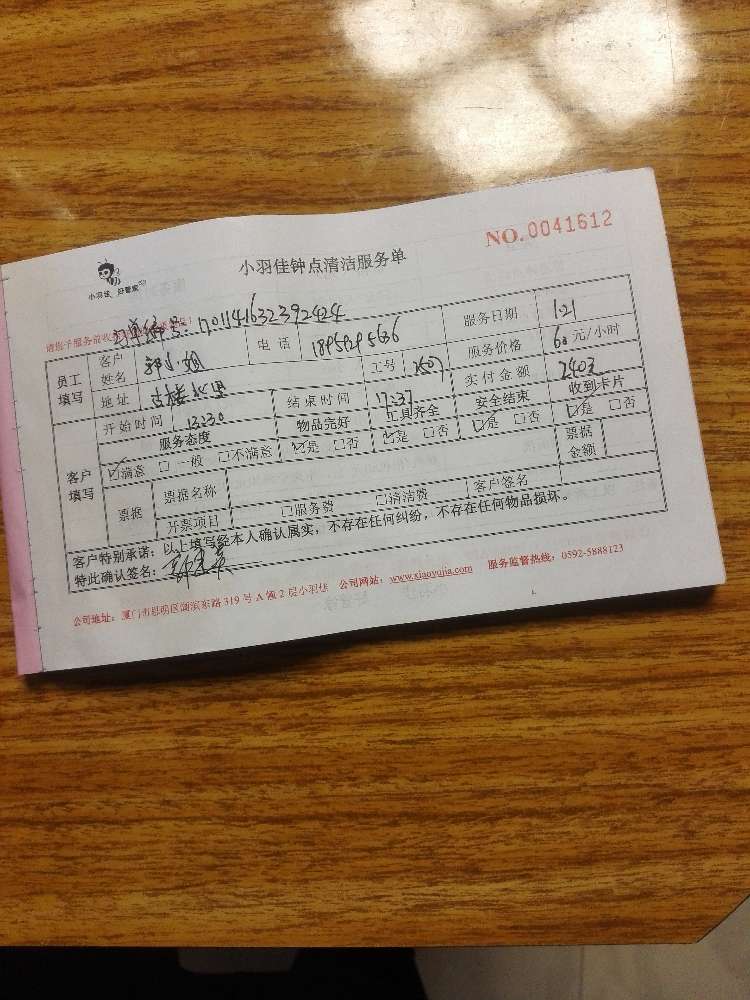 NO.0041612
小羽佳 好管家
小羽佳钟点清洁服务单
订单编号：170114163239242 4
员工填写 客户姓名 郭小姐 电话 服务日期 1.21
地址 工号 服务价格 60元/小时
开始时间 13:30 结束时间 17:37 实付金额 240元
客户填写 服务态度 物品完好 工具齐全 安全结束 收到卡片
☑满意 □一般 □不满意 ☑是 □否 ☑是 □否 ☑是 □否 ☑是 □否
票据 票据名称 票据金额
开票项目 □服务费 □清洁费 客户签名
客户特别承诺：以上填写经本人确认属实，不存在任何纠纷，不存在任何物品损坏。
特此确认签名：
公司地址：厦门市思明区湖滨东路319号A领2层小羽佳 公司网站：www.xiaoyujia.com 服务监督热线：0592-5888123